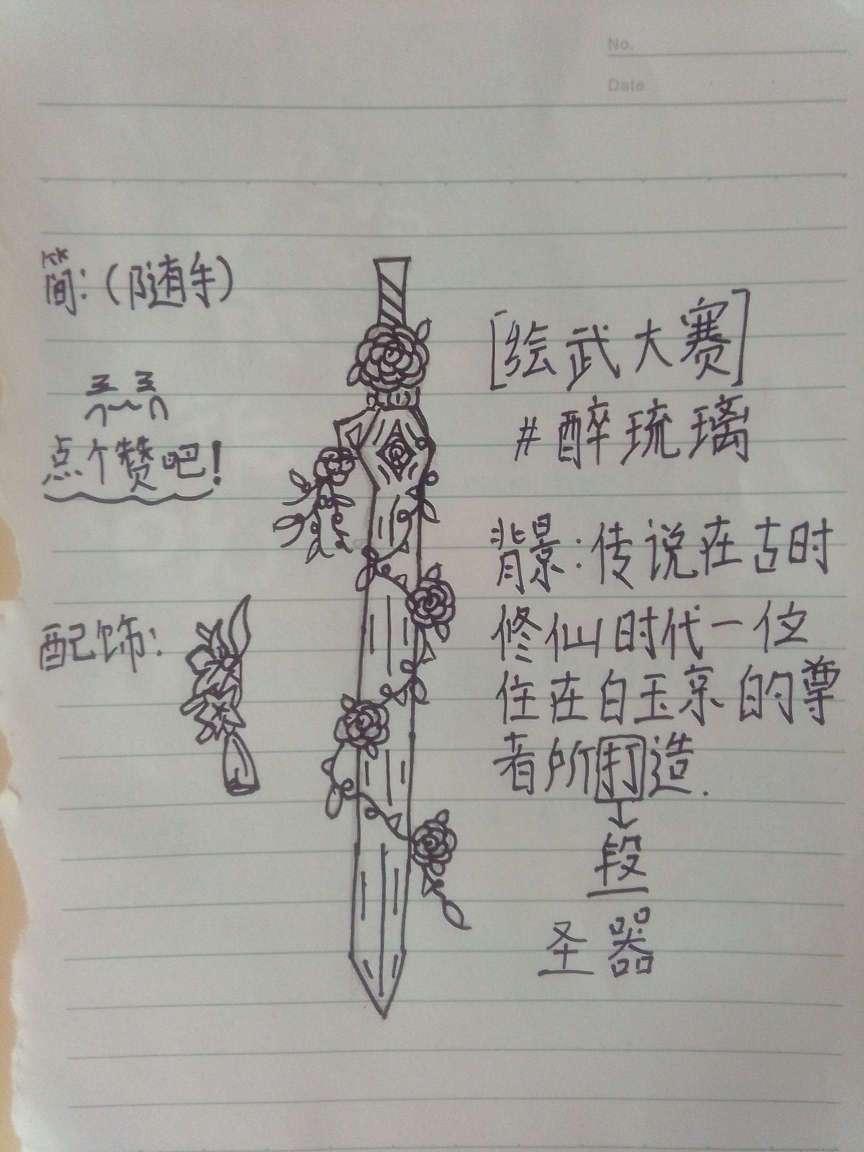 No.
Date
简:(随手)
点个赞吧!
配饰:
[绘武大赛]
#醉琉璃
背景:传说在古时
修仙时代一位
住在白玉京的尊
者所打造.
段
圣器